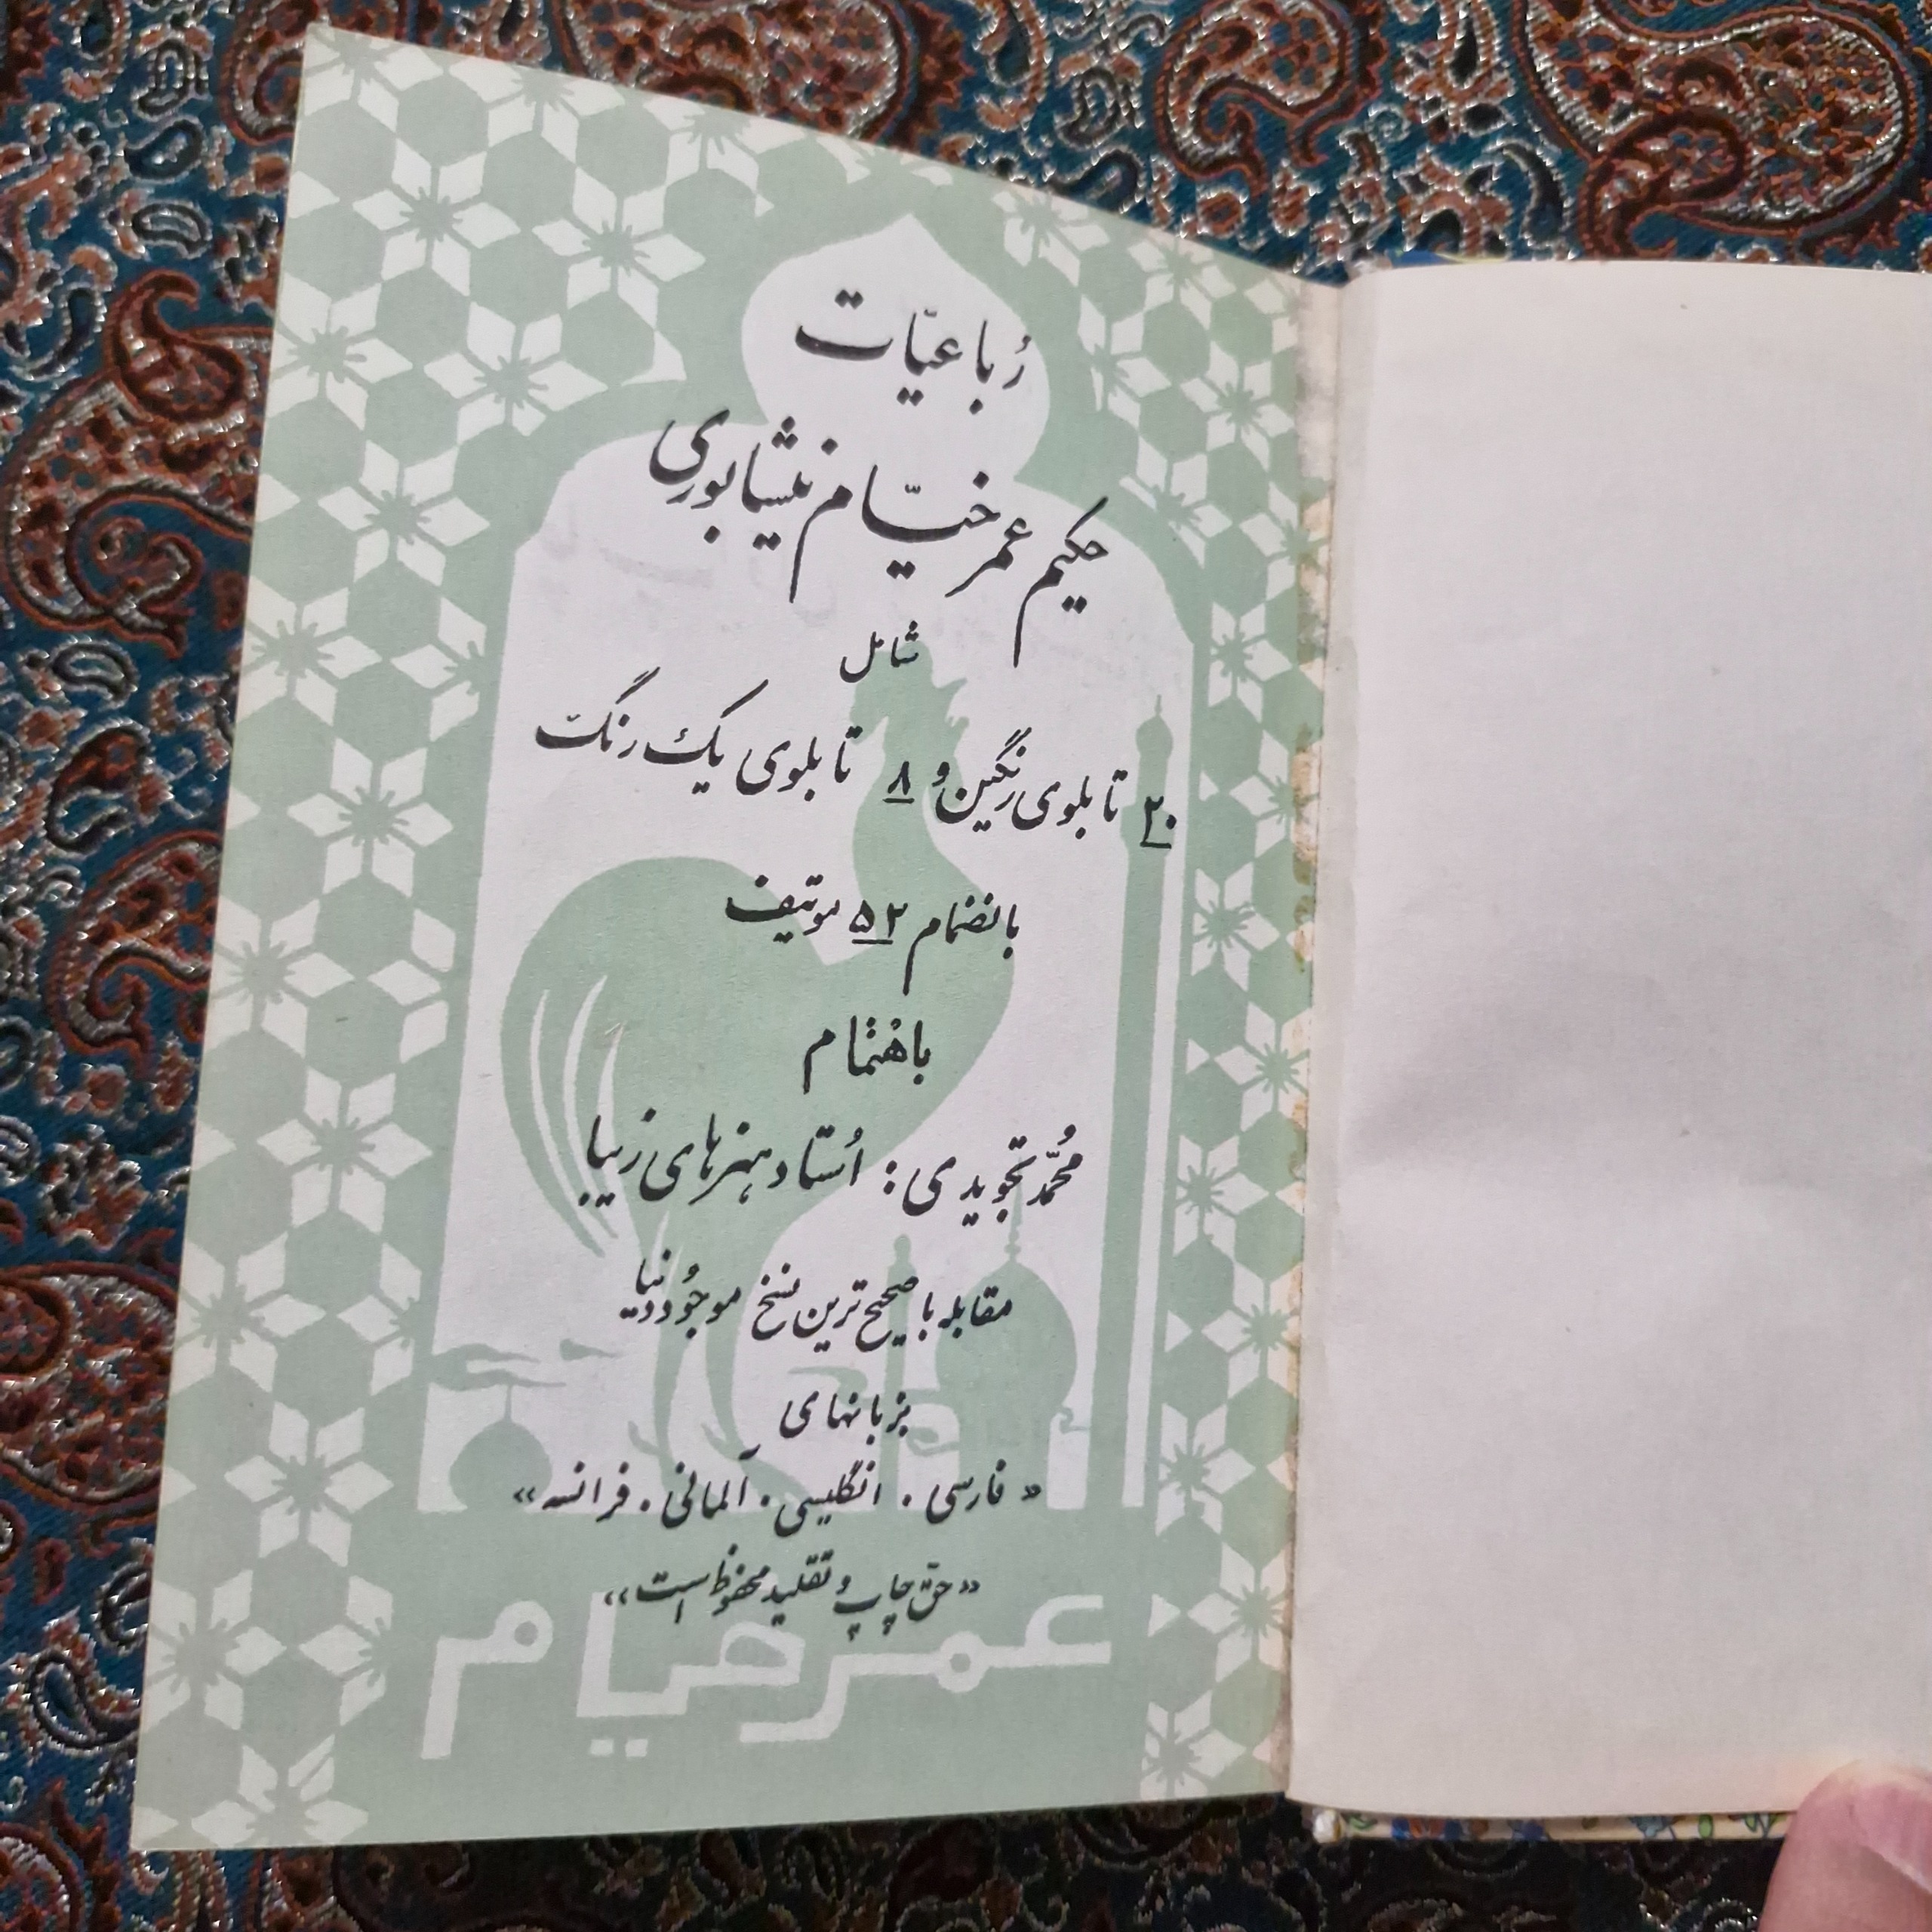 رُباعیّات
حکیم عمر خیّام نیشابوری
شامل
۲۰ تابلوی رنگین و ۸ تابلوی یک رنگ
بانضمام ۵۲ موتیف
باهتمام
مُحمّد تجویدی: اُستاد هنرهای زیبا
مقابله با صحیح ترین نسخ موجُود دنیا
بزبانهای
« فارسی . انگلیسی . آلمانی . فرانسه »
«حقّ چاپ و تقلید محفوظ است»
عمر خیام